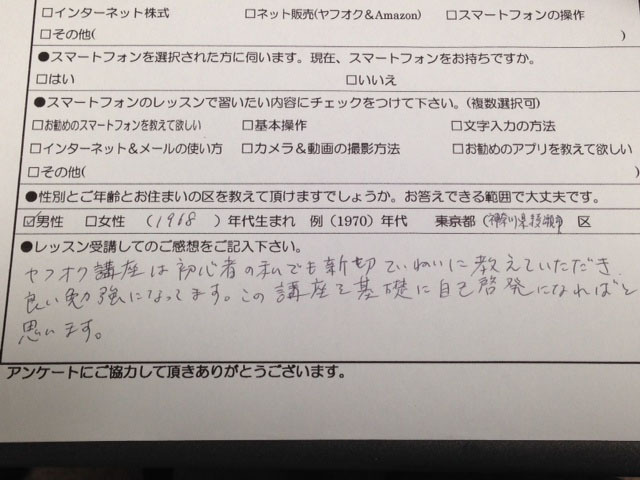 □インターネット株式 □ネット販売(ヤフオク&Amazon) □スマートフォンの操作
□その他( )
●スマートフォンを選択された方に伺います。現在、スマートフォンをお持ちですか。
□はい □いいえ
●スマートフォンのレッスンで習いたい内容にチェックをつけて下さい。(複数選択可)
□お勧めのスマートフォンを教えて欲しい □基本操作 □文字入力の方法
□インターネット&メールの使い方 □カメラ&動画の撮影方法 □お勧めのアプリを教えて欲しい
□その他( )
●性別とご年齢とお住まいの区を教えて頂けますでしょうか。お答えできる範囲で大丈夫です。
☑男性 □女性 (1968 )年代生まれ 例(1970)年代 東京都(神奈川県横須賀市 区
●レッスン受講してのご感想をご記入下さい。
ヤフオク講座は初心者の私でも新切ていねいに教えていただき
良い勉強になってます。この講座を基礎に自己啓発になればと
思います。
アンケートにご協力して頂きありがとうございます。